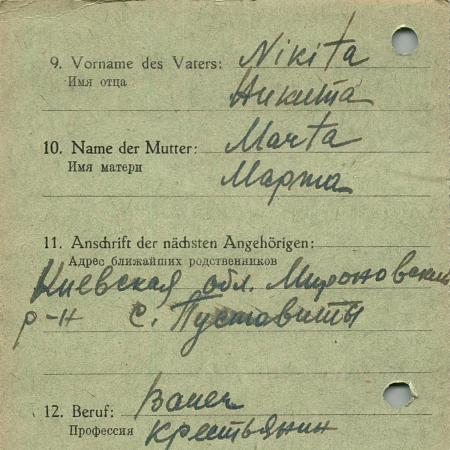 9. Vorname des Vaters: Nikita
Имя отца
Никита
10. Name der Mutter: Marta
Имя матери
Марта
11. Anschrift der nächsten Angehörigen:
Адрес ближайших родственников
Киевская обл. Мироновский
р-н с. Пустовиты
12. Beruf: Bauer
Профессия крестьянин